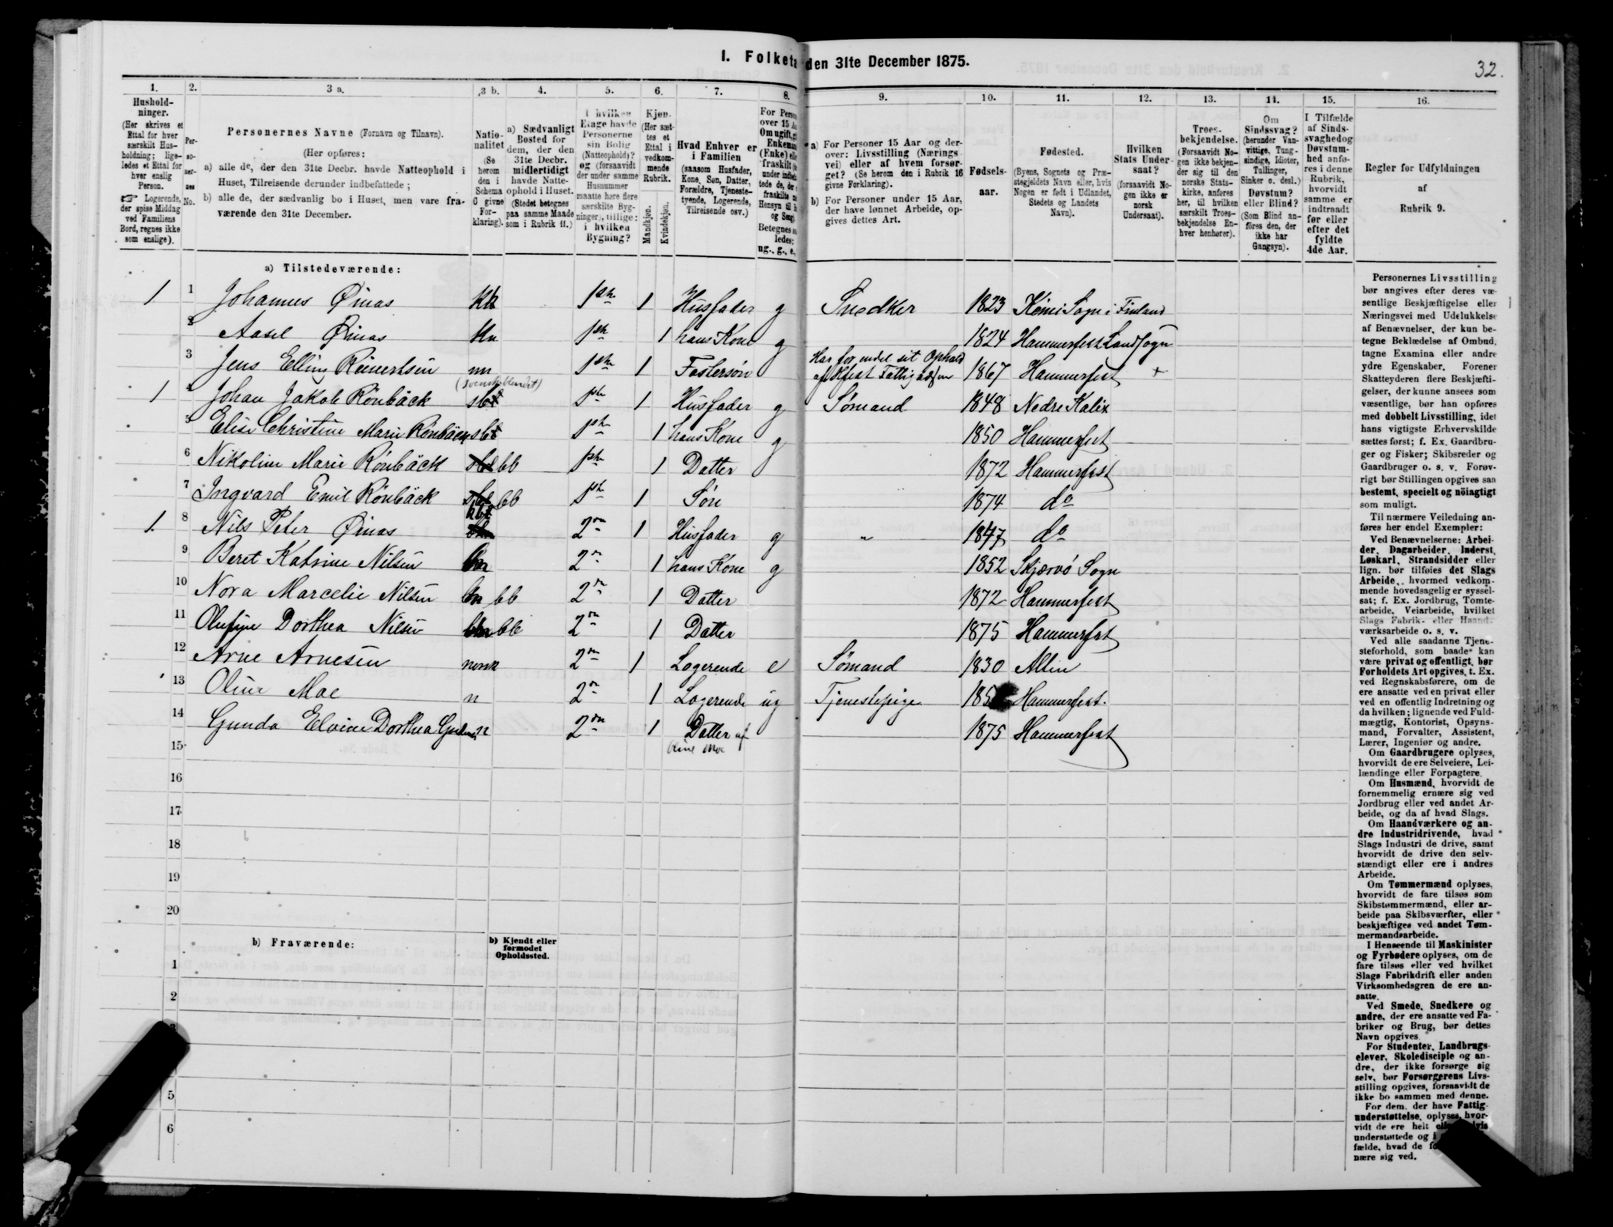 I. Folketæ
den 31te December 1875.
32.
1.
Hushold-
ninger.
(Her skrives et
Ettal for hver
særskilt Hus-
holdning; lige-
ledes et Ettal for
hver enslig
Person.
Logerende,
der spise Middag
ved Familiens
Bord, regnes ikke
som enslige).
2.
Per-
so-
ner-
nes
No.
3 a.
Personernes Navne (Fornavn og Tilnavn).
(Her opføres:
a) alle de, der den 31te Decbr. havde Natteophold i
Huset, Tilreisende derunder indbefattede;
b) alle de, der sædvanlig bo i Huset, men vare fra-
værende den 31te December.
3 b.
Natio-
nalitet
(Se
herom
den i
Schema
C givne
For-
klaring).
4.
a) Sædvanligt
Bosted for
dem, der den
31te Decbr.
midlertidigt
havde Natte-
ophold i Huset.
(Stedet betegnes
paa samme Maade
som i Rubrik 11.)
5.
I hvilken
Etage havde
Personerne
sin Bolig
(Natteophold)?
og (forsaavidt
der under samme
Husnummer
maatte høre flere
særskilte Byg-
ninger), tillige:
i hvilken
Bygning?
6.
Kjøn.
(Her sæt-
tes et
Ettal i
vedkom-
mende
Rubrik.
Mandkjøn.
Kvindekjøn.
7.
Hvad Enhver er
i Familien
(saasom Husfader,
Kone, Søn, Datter,
Forældre, Tjeneste-
tyende, Logerende,
Tilreisende osv.)
8.
For Person
over 15 Aa
Om ugift, gi
Enkemand
(Enke) elle
fraskilt
Betegnes
ledes:
ug., g., e.
9.
a) For Personer 15 Aar og der-
over: Livsstilling (Nærings-
vei) eller af hvem forsør-
get? (Se herom den i Rubrik 16
givne Forklaring).
b) For Personer under 15 Aar,
der have lønnet Arbeide, op-
gives dettes Art.
10.
Fødsels-
aar.
11.
Fødested.
(Byens, Sognets og Præ-
stegjeldets Navn eller, hvis
Nogen er født i Udlandet,
Stedets og Landets
Navn).
12.
Hvilken
Stats Under-
saat?
(forsaavidt No-
gen ikke er
norsk
Undersaat).
13.
Troes-
bekjendelse.
(Forsaavidt No-
gen ikke bekjen-
der sig til den
norske Stats-
kirke, anføres
her, til hvilken
særskilt Troes-
bekjendelse En-
hver henhører).
14.
Om
Sindssvag?
(herunder Van-
vittige, Tung-
sindige, Idioter,
Tullinger,
Sinker o. desl.)
Døvstum?
eller Blind?
(Som Blind an-
føres den, der
ikke har
Gangsyn).
15.
I Tilfælde
af Sinds-
svaghed og
Døvstum-
hed anfø-
res i denne
Rubrik,
hvorvidt
samme er
indtraadt
før eller
efter det
fyldte
4de Aar.
16.
Regler for Udfyldningen
af
Rubrik 9.
a) Tilstedeværende:
1 1 Johannes Øinas kn 1ste 1 Husfader g Snedker 1823 Kemi Sogn i Finland
2 Aasel Øinas kn 1ste 1 hans Kone g 1824 Hammerfest Landsogn
3 Jens Ellius Reinertsen nn 1ste 1 Fostersøn Har for endel sit Ophold af Hfest Fattigvæsen 1867 Hammerfest +
(svenskblandet)
1 4 Johan Jakob Rönbäck sbl 1ste 1 Husfader g Sømand 1848 Nedre Kalix
5 Elise Christine Marie Rönbäck sbl 1ste 1 hans Kone g 1850 Hammerfest
6 Nikoline Marie Rönbäck bb 1ste 1 Datter 1872 Hammerfest
7 Ingvard Emil Rönbäck bb 1ste 1 Søn 1874 do
1. 8 Nils Peter Øinas 2den 1 Husfader g " 1847 do
9 Beret Katrine Nilsen 2den 1 hans Kone g 1852 Skjervö Sogn
10 Nora Marcelie Nilsen bb 2den 1 Datter 1872 Hammerfest
11 Olufine Dorthea Nilsen bb 2den 1 Datter 1875 Hammerfest
12 Arne Arnesen norsk 2den 1 Logerende e Sømand 1830 Alten
13 Oline Moe n 2den 1 Logerende ug Tjenestepige 185 Hammerfest.
14 Gunda Elvine Dorthea n 2den 1 Datter af Oline Moe 1875 Hammerfest
15
16
17
18
19
20
b) Fraværende:
b) Kjendt eller
formodet
Opholdssted.
1
2
5
6
Personernes Livsstilling
bør angives efter deres væ-
sentlige Beskjæftigelse eller
Næringsvei med Udelukkelse
af Benævnelser, der kun be-
tegne Beklædelse af Ombud,
tagne Examina eller andre
ydre Egenskaber. Forener
Skatteyderen flere Beskjæfti-
gelser, der kunne ansees som
væsentlige, bør han opføres
med dobbelt Livsstilling, idet
hans vigtigste Erhvervskilde
sættes først; f. Ex. Gaardbru-
ger og Fisker; Skibsreder og
Gaardbruger o. s. v. Forøv-
rigt bør Stillingen opgives saa
bestemt, specielt og nöiagtigt
som muligt.
Til nærmere Veiledning an-
føres her endel Exempler:
Ved Benævnelserne: Arbei-
der, Dagarbeider, Inderst,
Løskarl, Strandsidder eller
lign. bør tilføies det Slags
Arbeide, hvormed vedkom-
mende hovedsagelig er syssel-
sat; f. Ex. Jordbrug, Tomte-
arbeide, Veiarbeide, hvilket
Slags Fabrik- eller Haand-
værksarbeide o. s. v.
Ved alle saadanne Tjene-
steforhold, som baade kan
være privat og offentligt, bør
Forholdets Art opgives, t. Ex.
ved Regnskabsførere, om de
ere ansatte ved en privat eller
ved en offentlig Indretning og
da hvilken; lignende ved Fuld-
mægtig, Kontorist, Opsyns-
mand, Forvalter, Assistent,
Lærer, Ingeniør og andre.
Om Gaardbrugere oplyses,
hvorvidt de ere Selveiere, Lei-
lændinge eller Forpagtere.
Om Husmænd, hvorvidt de
fornemmelig ernære sig ved
Jordbrug eller ved andet Ar-
beide, og da af hvad Slags.
Om Haandværkere og an-
dre Industridrivende, hvad
Slags Industri de drive, samt
hvorvidt de drive den selv-
stændigt eller ere i andres
Arbeide.
Om Tømmermænd oplyses,
hvorvidt de fare tilsøs som
Skibstømmermænd, eller ar-
beide paa Skibsværfter, eller
beskjæftiges ved andet Tøm-
mermandsarbeide.
I Henseende til Maskinister
og Fyrbødere oplyses, om de
fare tilsøs eller ved hvilket
Slags Fabrikdrift eller anden
Virksomhedsgren de ere an-
satte.
Ved Smede, Snedkere og
andre, der ere ansatte ved Fa-
briker og Brug, bør dettes
Navn opgives.
For Studenter, Landbrugs-
elever, Skoledisciple og an-
dre, der ikke forsørge sig
selv, bør Forsørgerens Livs-
stilling opgives, forsaavidt de
ikke bo sammen med denne.
For dem, der have Fattig-
understøttelse, oplyses, hvor-
vidt de ere helt
understøttede og i
fælde, hvad de
nære sig ved.